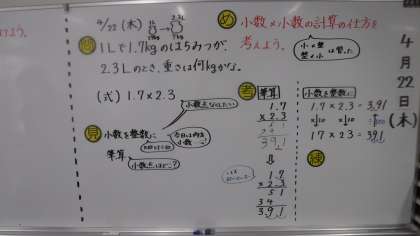 よう。
4/22(木)
問 1Lで1.7kgのはちみつが、
2.3Lのとき、重さは何kgかな。
(式) 1.7×2.3
見 小数を整数に
筆算
小数点はどこ?
小数点なくしたい
め 小数×小数の計算の仕方を
考えよう。
小×整
整×小 は習った
考 筆算
1.7
×2.3
5 1
3 4
3 9.1
⇩
1.7
×2.3
5 1
3 4
3.9.1
小数を整数に
1.7×2.3=3.91
↓×10 ↓×10
17×23=391
練
4月22日(木)